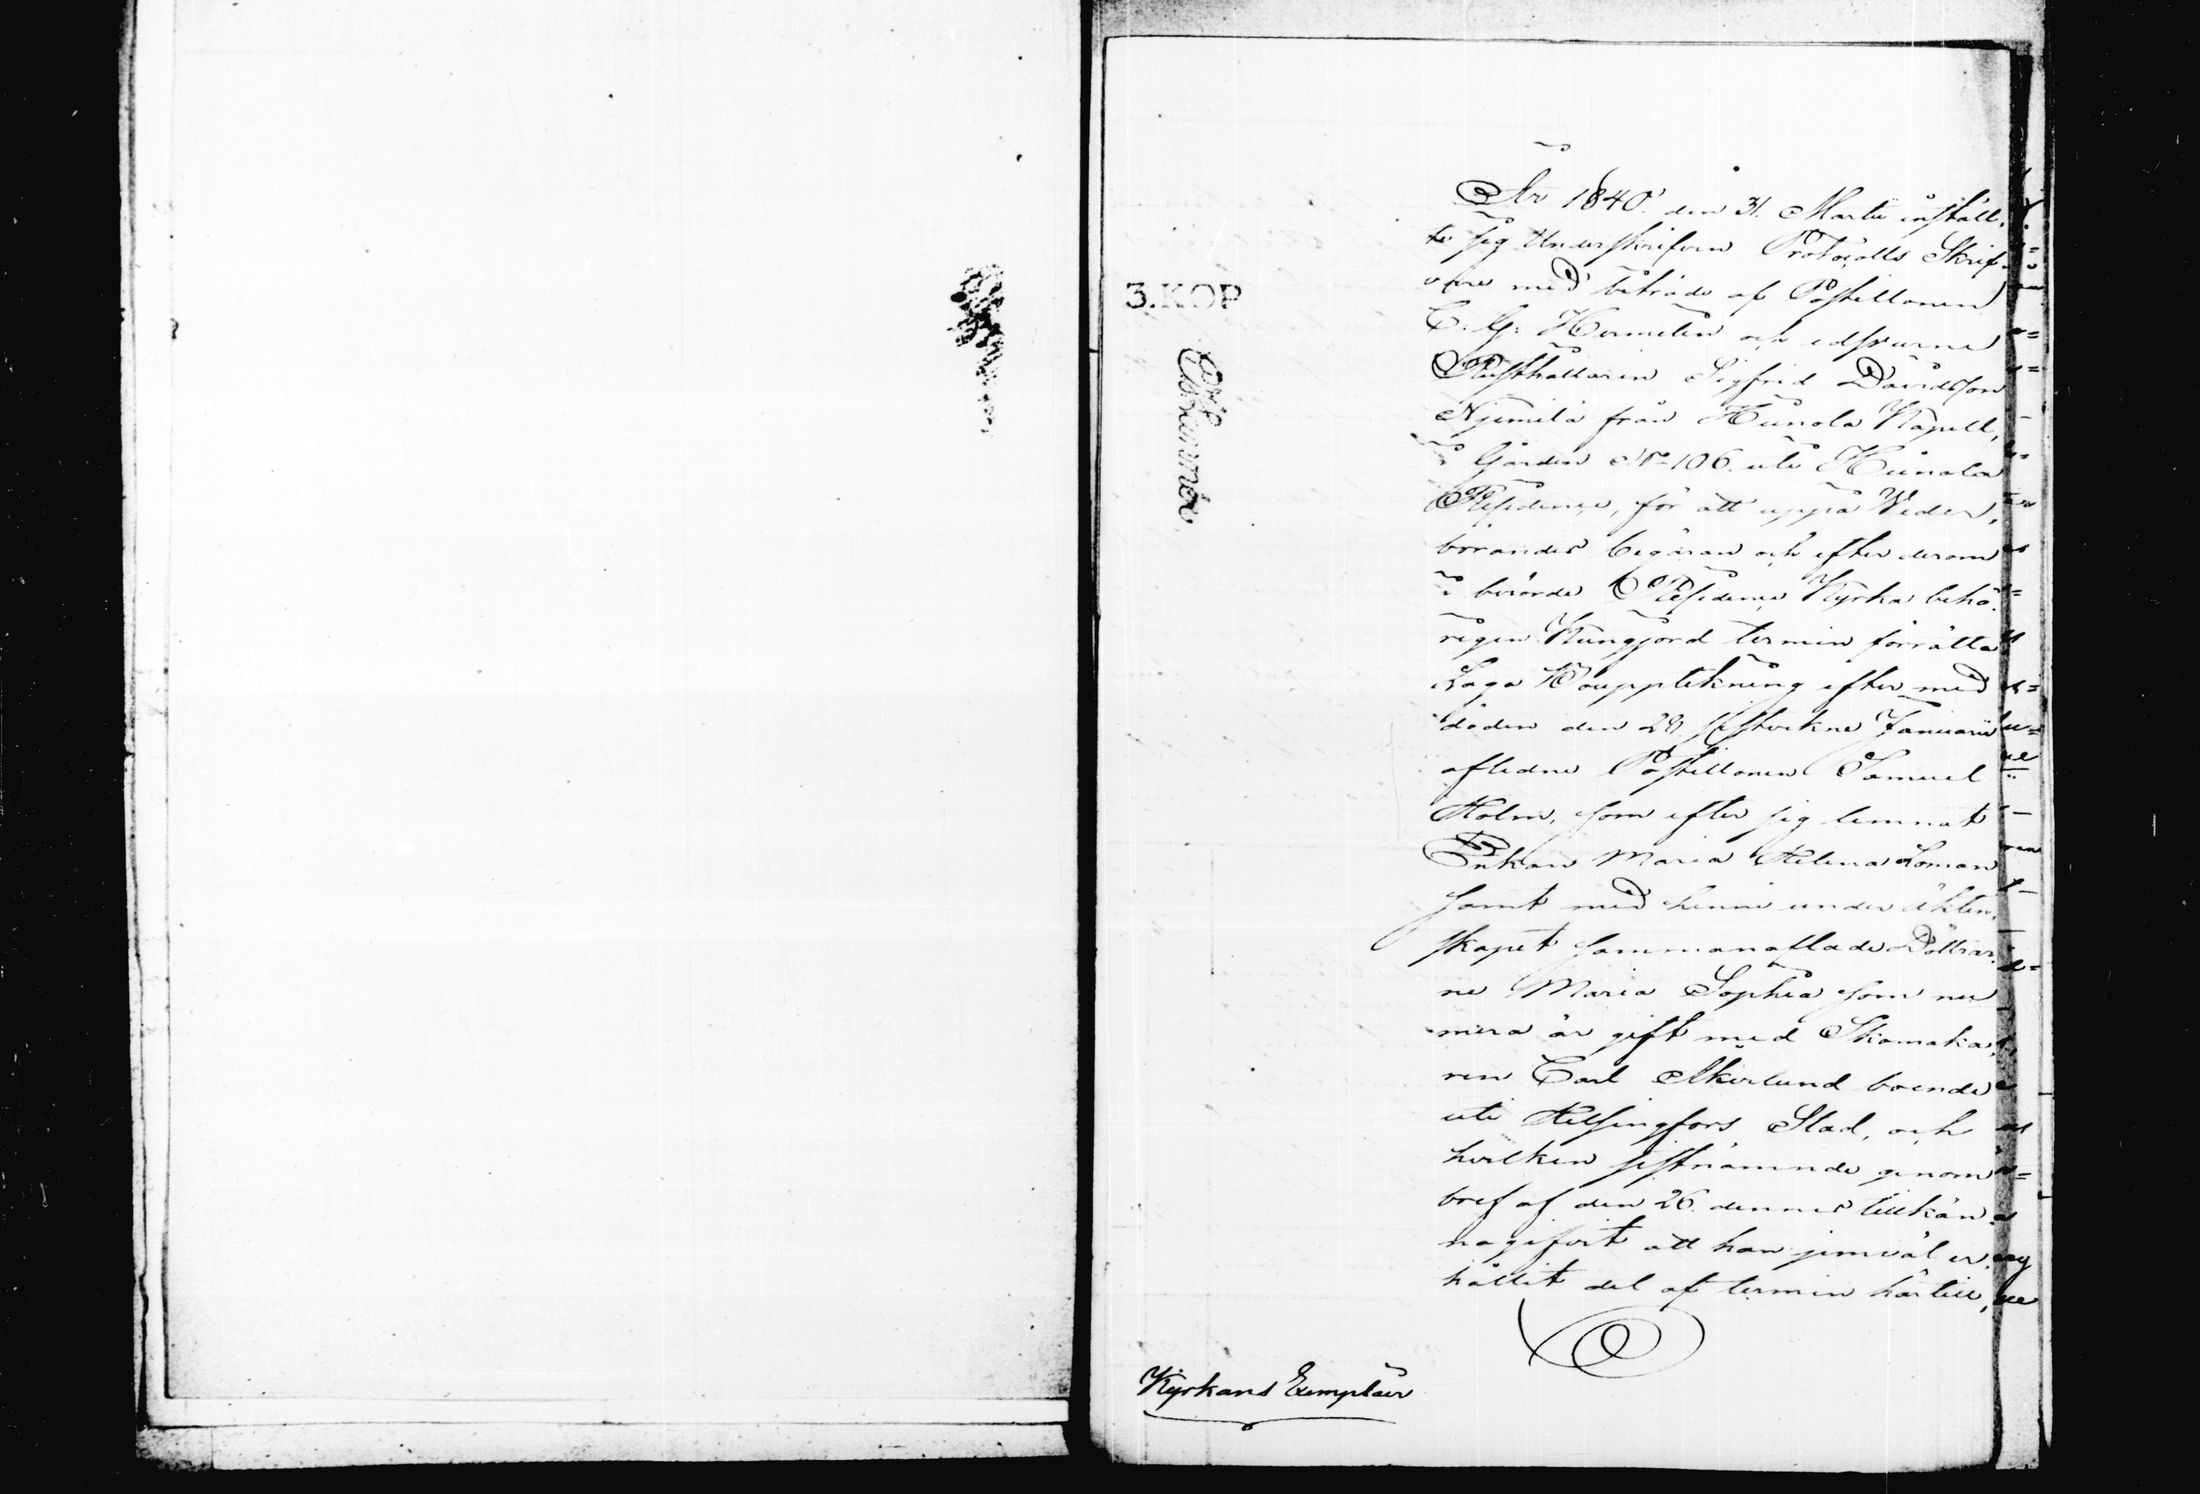 År 1840. den 31. Martii instäld,
te sig Underskrifven Protocolls Skrif-
vare med biträde af Postillonen
C. G. Hermelin och edsvurne
Rusthållaren Sigfrid Davidsson
från Hiinola Kapell,
i Gården No 106. uti Hiinola
Residence, för att uppå Veder,
börandes begäran och efter derom
i berörde Residence Kyrka behö-
rigen Kungjord termin förrätta
Laga Bouppteckning efter med
döden den 28 sistvekne Januarii
afledne Postillonen Samuel
Holm, som efter sig lemnat
Enkan Maria Helena Loman
samt med henne under äkten,
skapet sammanaflade Döttrar-
ne Maria Sophia som nu
mera är gift med Skomaka,
ren Carl Åkerlund boende
uti Helsingfors Stad, och
hvilken sistnämnde genom
bref af den 26. dennes tillkän-
nagifvit att han jemväl er-
hållit del af termin härtill,
3.KOP
Kyrkans Exemplar